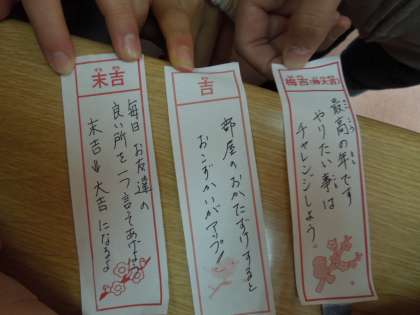 末吉
毎日 お友達の
良い所を一つ言ってあげよう
末吉 大吉 になるよ
吉
部屋のおかたずけすると
おこずかいがアップ!
最高の年です
やりたい事は
チャレンジしよう。